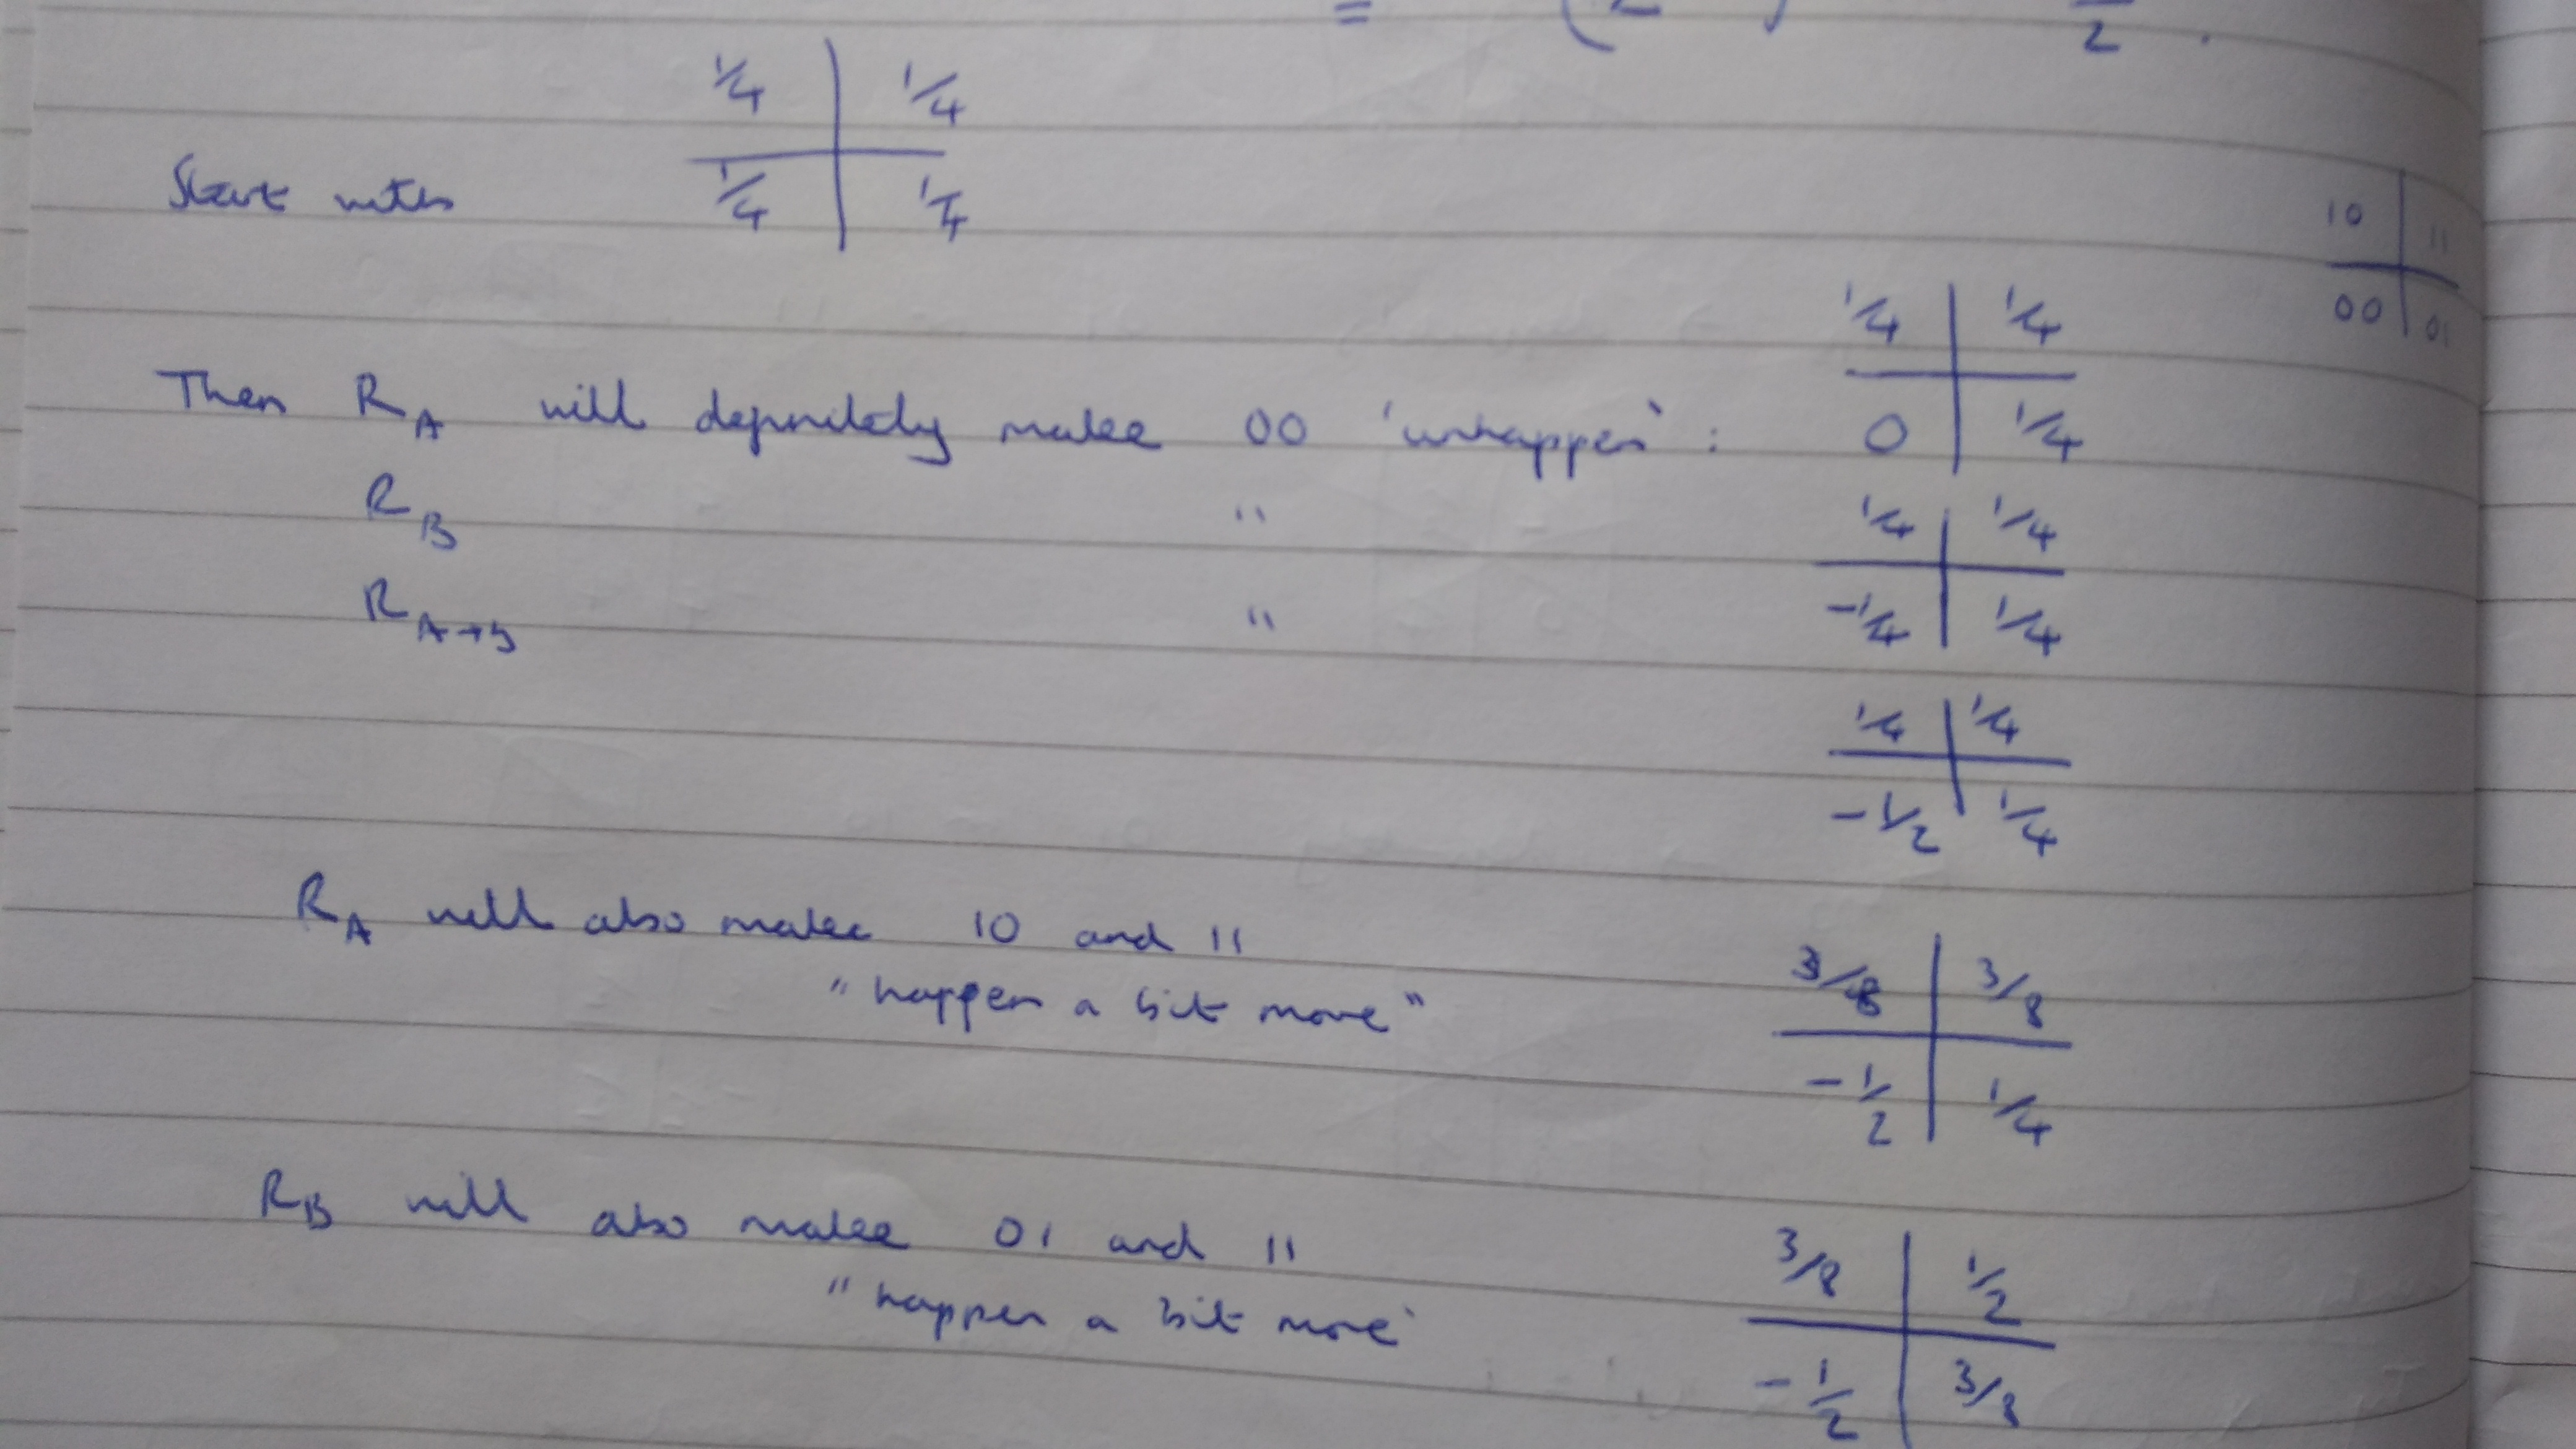 = ( 2 ) 2 .
1/4 | 1/4
Start with 1/4 | 1/4
10 | 11
00 | 01
1/4 | 1/4
Then R_A will definitely make 00 'unhappen' : 0 | 1/4
R_B " 1/4 | 1/4
-1/4 | 1/4
R_A→B "
1/4 | 1/4
-1/2 | 1/4
R_A will also make 10 and 11 3/8 | 3/8
"happen a bit more"
-1/2 | 1/4
R_B will also make 01 and 11 3/8 | 1/2
"happen a bit more"
-1/2 | 3/8